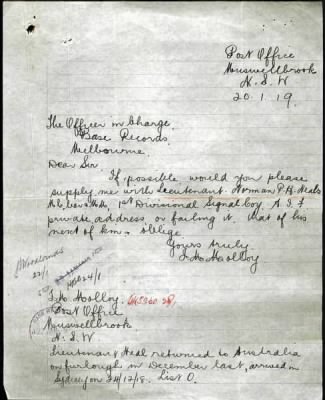 Post Office
Muswellbrook
N. S. W
20. 1. 19.
The Officer in Charge,
Base Records
Melbourne.
Dear Sir
If possible would you please
supply me with Lieutenant Norman P. H. Neals
1st Divisional Signal Coy A. I. F
private address, or failing it, that of his
next of kin & oblige
Yours truly
J. M. Molloy
22/1
J. M. Molloy.
Post Office
Muswellbrook
N. S. W
Lieutenant Neal returned to Australia
on furlough in December last, arrived in
Sydney on 24/12/18. List O.